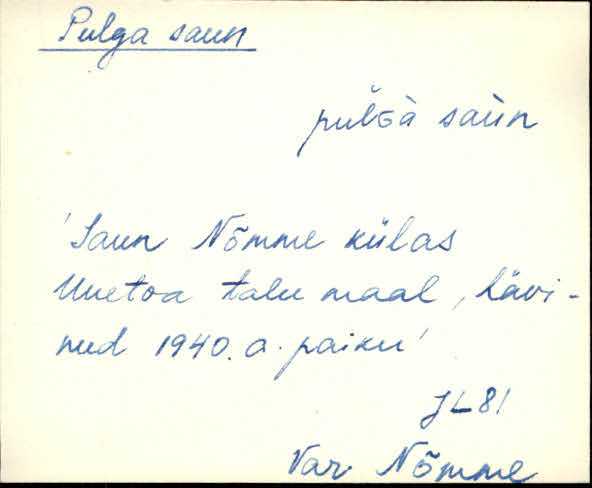 Pulga saun
pulGà saùn
'Saun Nõmme külas
Uuetoa talu maal, hävi-
nud 1940. a. paiku'
JL 81
Var Nõmme